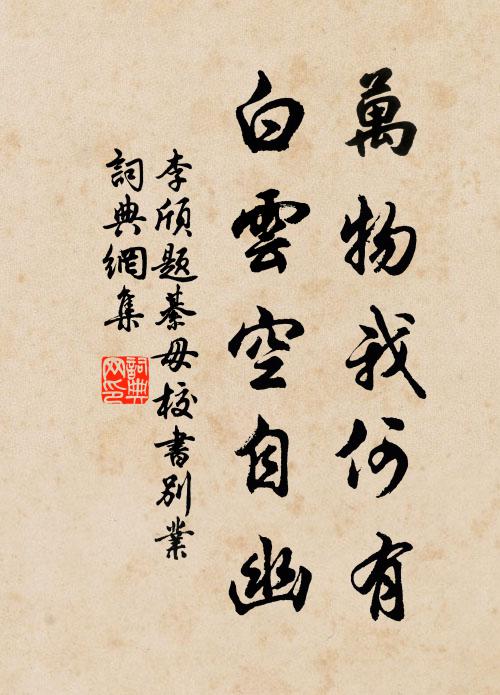 萬物我何有
白雲空自幽
李頎題綦毋校書別業
詞典網集
詞典
网印